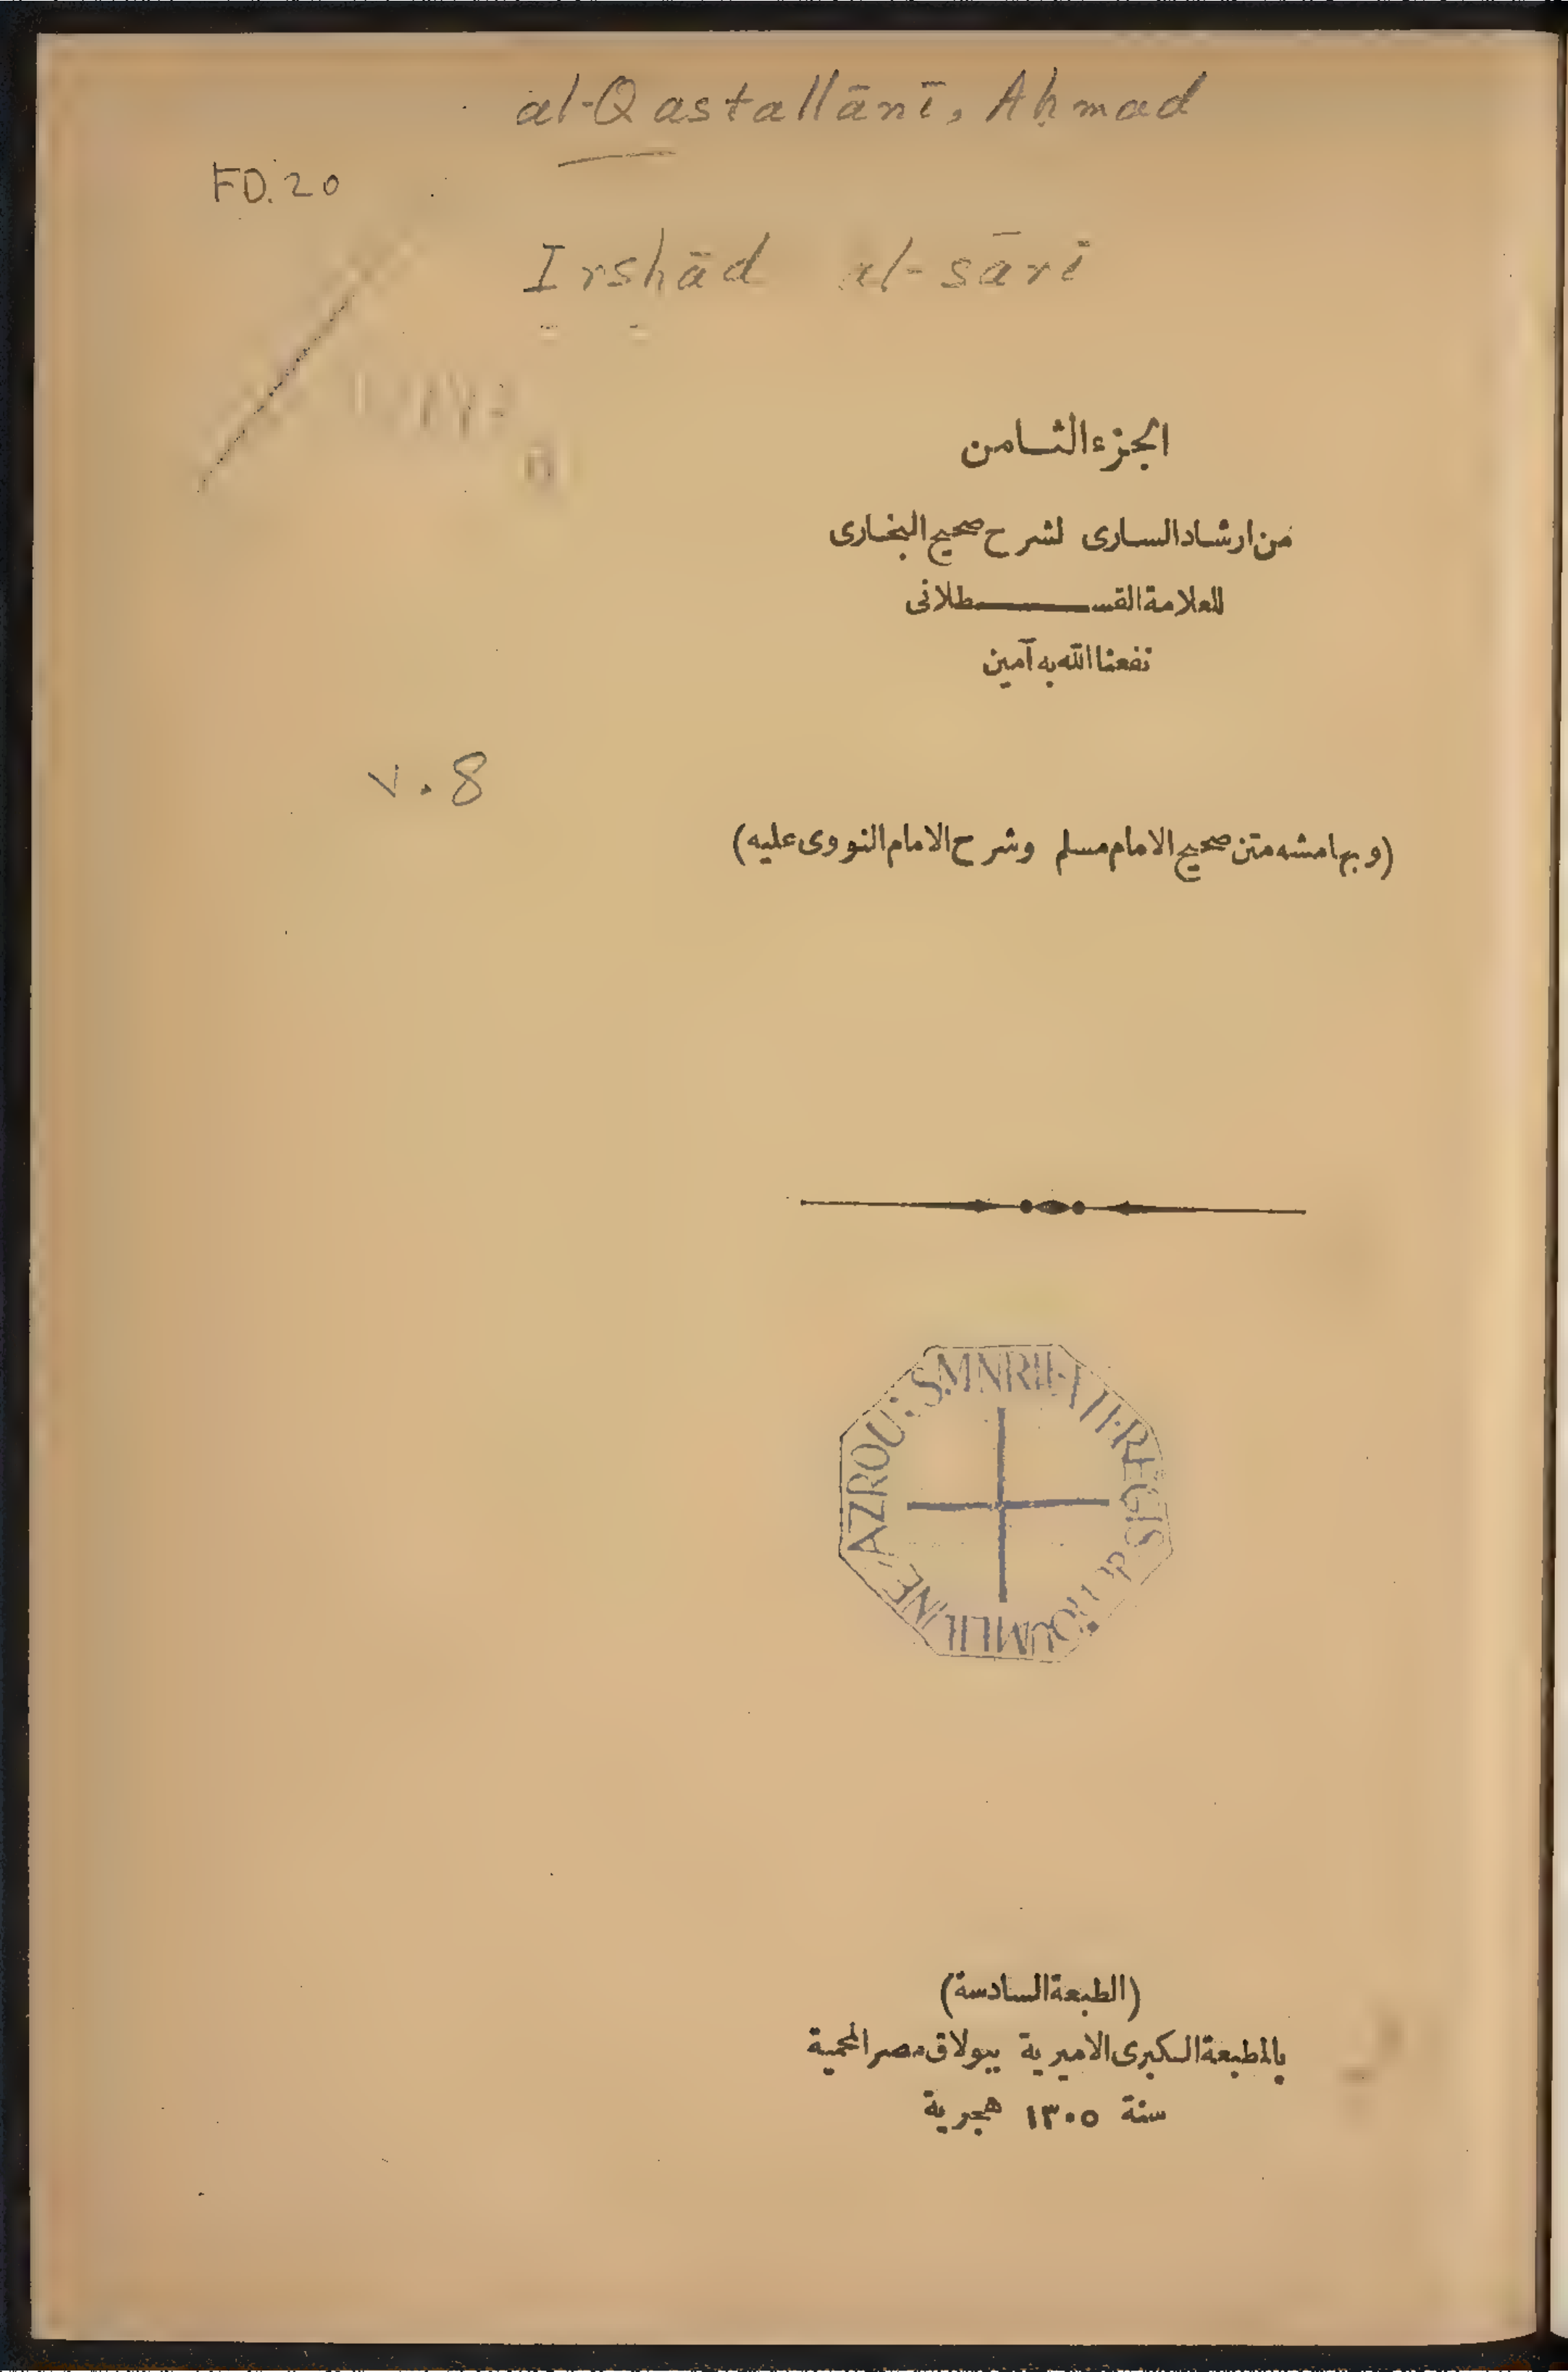 al-Qastallānī, Aḥmad
FD.20
Irshād al-sārī
الجزء الثامن
من ارشاد السارى لشرح صحيح البخارى
للعلامة القسطلانى
نفعنا الله به آمين
v.8
(وبهامشه متن صحيح الامام مسلم وشرح الامام النووى عليه)
REGIS de TOUMLILINE AZROU
(الطبعة السادسة)
بالمطبعة الكبرى الاميرية ببولاق مصر المحمية
سنة ١٣٠٥ هجرية